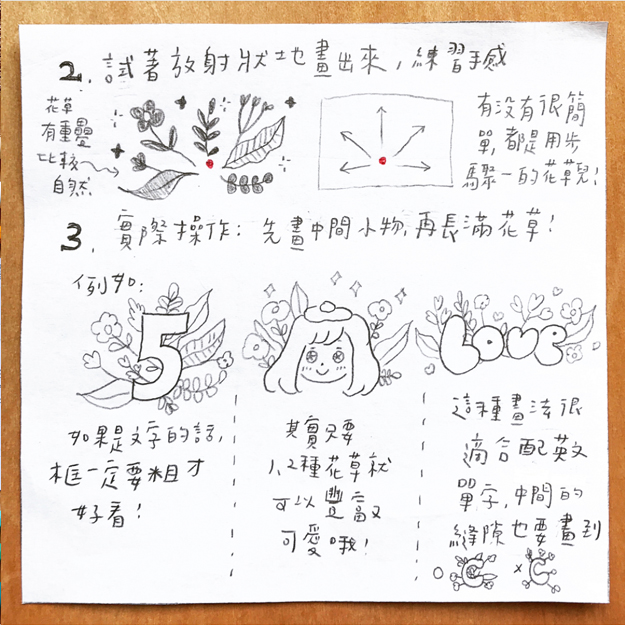 2. 試著放射狀地畫出來,練習手感
花草
有重疊
比較
自然
有沒有很簡
單,都是用步
驟一的花草兒!
3. 實際操作:先畫中間小物,再長滿花草!
例如:
5
如果是文字的話,
框一定要粗才
好看!
其實只要
1、2種花草就
可以豐富又
可愛哦!
LOVE
這種畫法很
適合配英文
單字,中間的
縫隙也要畫到
O C x C